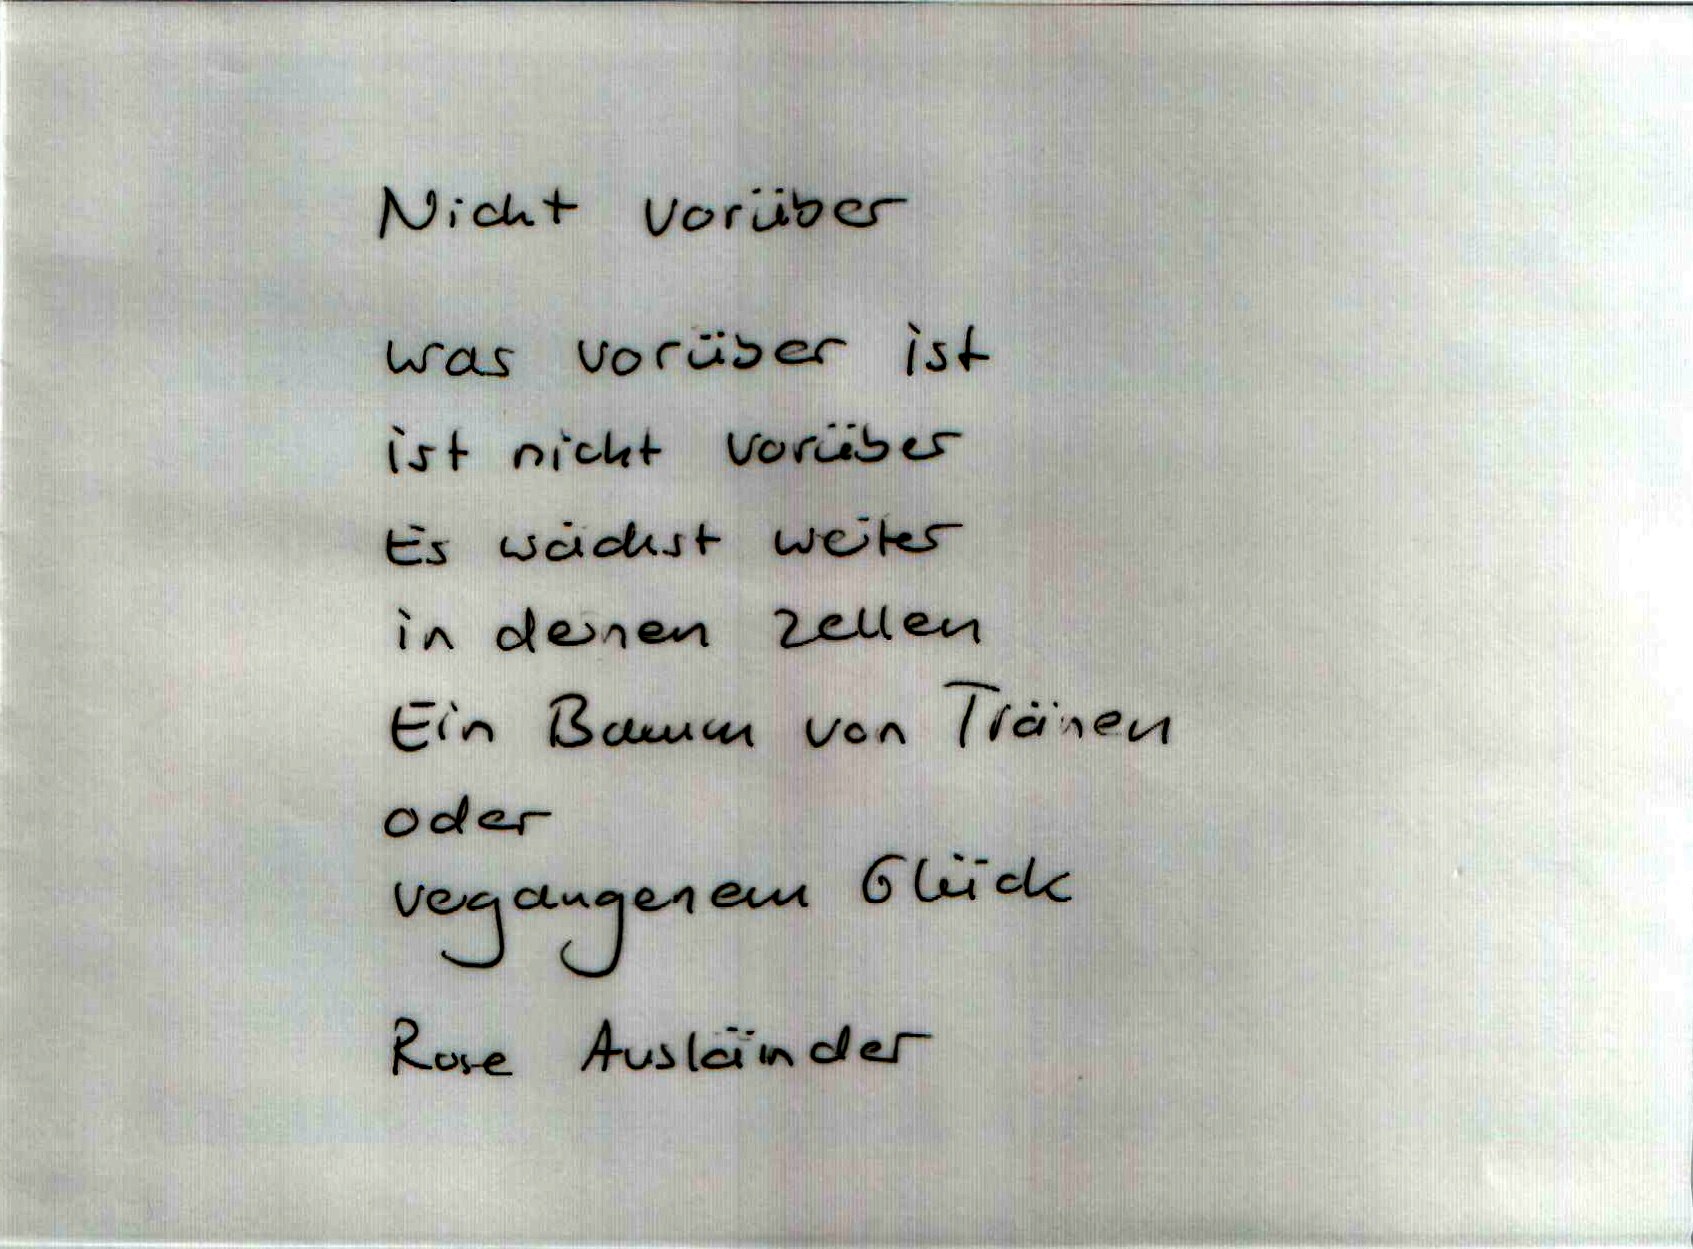 Nicht vorüber
was vorüber ist
ist nicht vorüber
Es wächst weiter
in deinen Zellen
Ein Baum von Tränen
oder
vegangenem Glück
Rose Ausländer